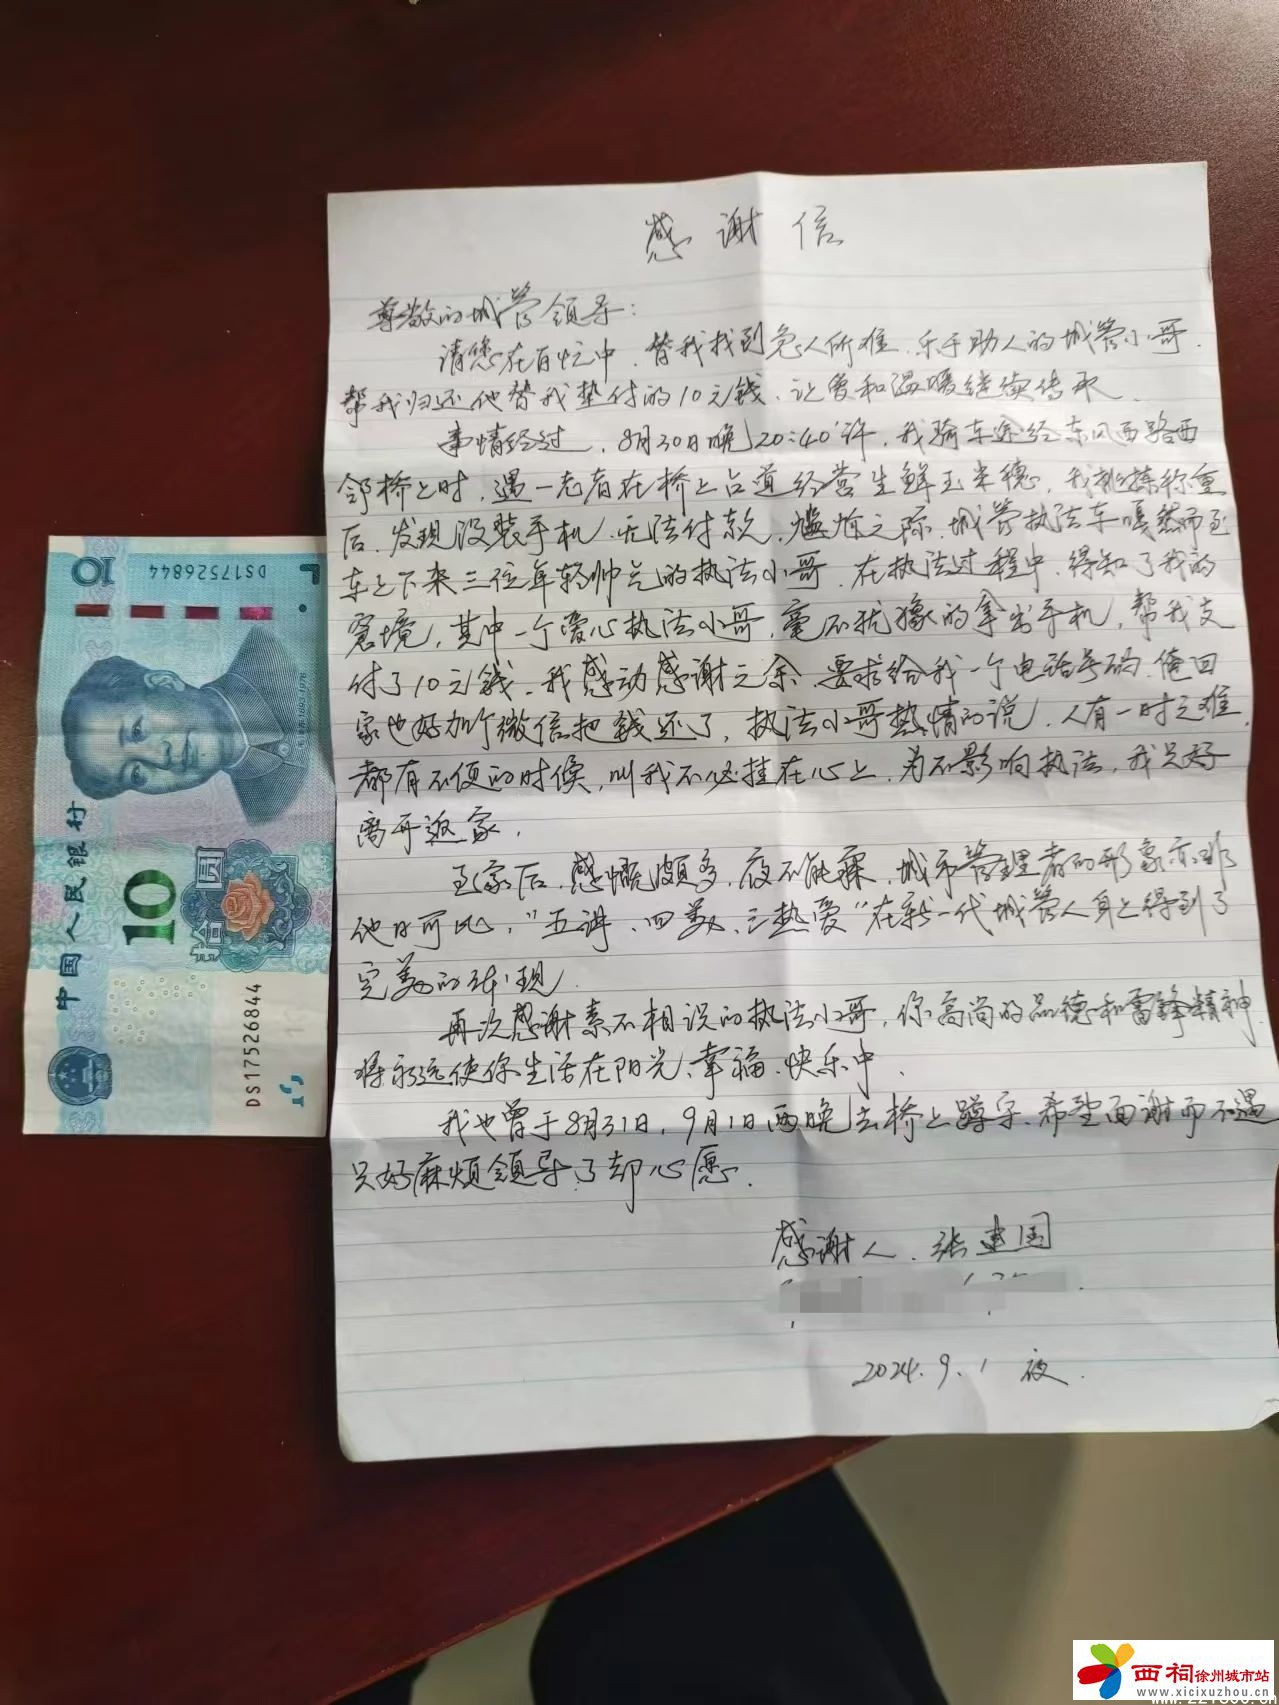 感谢信
尊敬的城管领导：
请您在百忙中，替我找到急人所难、乐于助人的城管小哥，
帮我归还他替我垫付的10元钱，让爱和温暖继续传承。
事情经过，8月30日晚20:40许，我骑车途经东风西路西
邻桥上时，遇一老者在桥上占道经营生鲜玉米穗，我挑拣称重
后，发现没装手机，无法付款，尴尬之际，城管执法车嘎然而至
车上下来三位年轻帅气的执法小哥，在执法过程中，得知了我的
窘境，其中一个爱心执法小哥，毫不犹豫的拿出手机，帮我支
付了10元钱，我感动感谢之余，要求给我一个电话号码，俺回
家也好加个微信把钱还了，执法小哥热情的说，人有一时之难，
都有不便的时候，叫我不必挂在心上，为不影响执法，我只好
离开返家，
到家后，感慨颇多，夜不能寐，城市管理者的形象亦非
他日可比，"五讲、四美、三热爱"在新一代城管人身上得到了
完美的体现。
再次感谢素不相识的执法小哥，你高尚的品德和雷锋精神
将永远使你生活在阳光、幸福、快乐中。
我也曾于8月31日，9月1日两晚去桥上蹲守，希望面谢而不遇
只好麻烦领导了却心愿。
感谢人：张建国
2024.9.1 夜.
10
DS17526844
中国人民银行
10
拾圆
DS17526844
西祠徐州城市站
www.xicixuzhou.cn